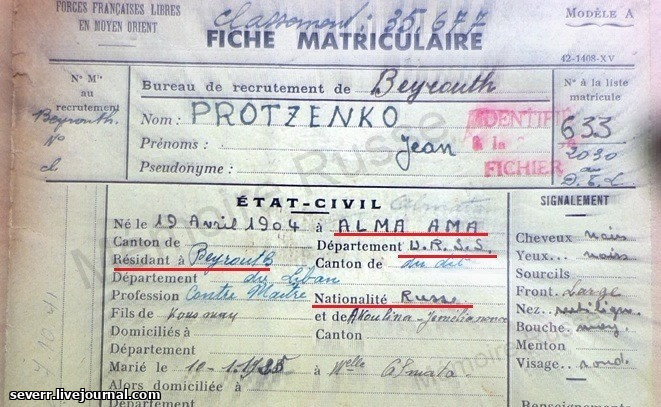 FORCES FRANÇAISES LIBRES
EN MOYEN ORIENT
Classement: 35.677
MODÈLE A
FICHE MATRICULAIRE
42-1408-XV
N° Mle
au
recrutement
Beyrouth.
N°
Bureau de recrutement de Beyrouth
Nom: PROTZENKO
Prénoms: Jean
Pseudonyme:
IDENTIFIÉ
à la
FICHIER
N° à la liste
matricule
633
2030
ÉTAT-CIVIL
Né le 19 Avril 1904 à ALMA AMA
Canton de Département U.R.S.S.
Résidant à Beyrouth Canton de du dit
Département du Liban
Profession Contre Maitre Nationalité Russe
Fils de et de Akoulina
Domiciliés à Canton
Département
Marié le 10-1-1925 à Melle
Alors domiciliée à
Département
SIGNALEMENT
Cheveux noirs
Yeux noirs
Sourcils
Front Large
Nez
Bouche moy.
Menton
Visage rond.
Renseignements
Mémoire Russe
severr.livejournal.com